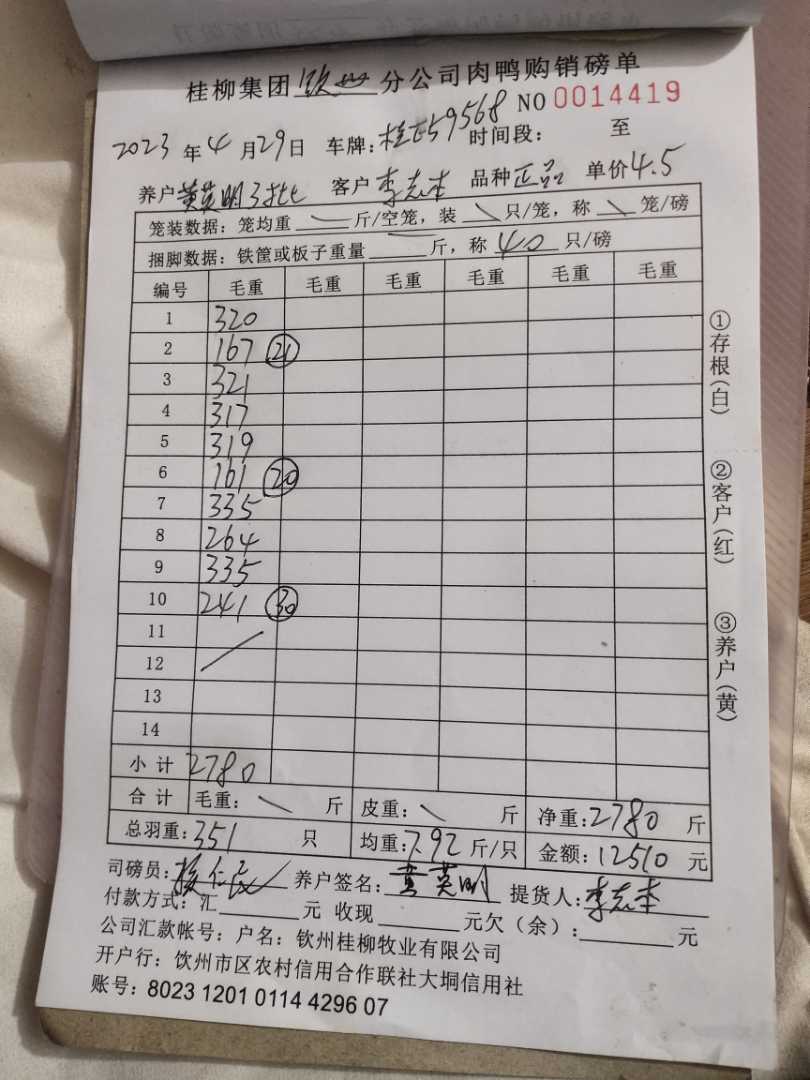 桂柳集团 钦州 分公司肉鸭购销磅单
NO 0014419
2023 年 4 月 29 日 车牌: 桂 59568 时间段: 至
养户 黄英明3批 客户 李志本 品种 正品 单价 4.5
笼装数据: 笼均重 斤/空笼, 装 只/笼, 称 笼/磅
捆脚数据: 铁筐或板子重量 斤, 称 40 只/磅
编号 毛重 毛重 毛重 毛重 毛重 毛重
1 320
2 167 ㉑
3 321
4 317
5 319
6 161 ⑳
7 335
8 264
9 335
10 241 ㉚
11
12
13
14
小 计 2780
合 计 毛重: 斤 皮重: 斤 净重: 2780 斤
总羽重: 351 只 均重: 7.92 斤/只 金额: 12510 元
司磅员: 养户签名: 黄英明 提货人: 李志本
付款方式: 汇 元 收现 元欠(余): 元
公司汇款帐号: 户名: 钦州桂柳牧业有限公司
开户行: 饮州市区农村信用合作联社大垌信用社
账号: 8023 1201 0114 4296 07
①存根(白)
②客户(红)
③养户(黄)